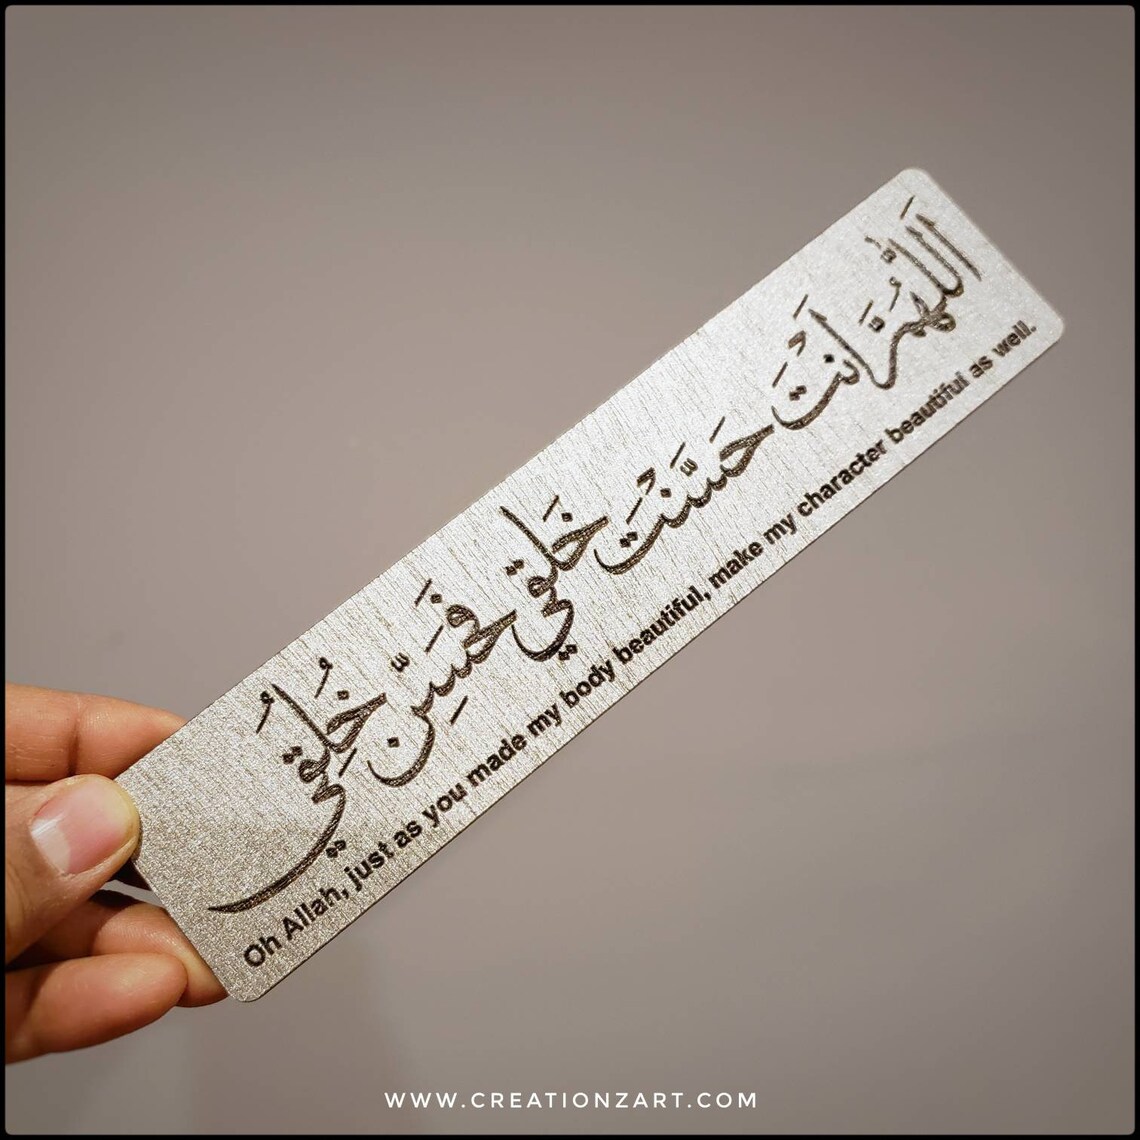 اَللّٰهُمَّ اَنْتَ حَسَّنْتَ خَلَقي فَحَسِّن خُلِقِي
Oh Allah, just as you made my body beautiful, make my character beautiful as well.
WWW.CREATIONZART.COM